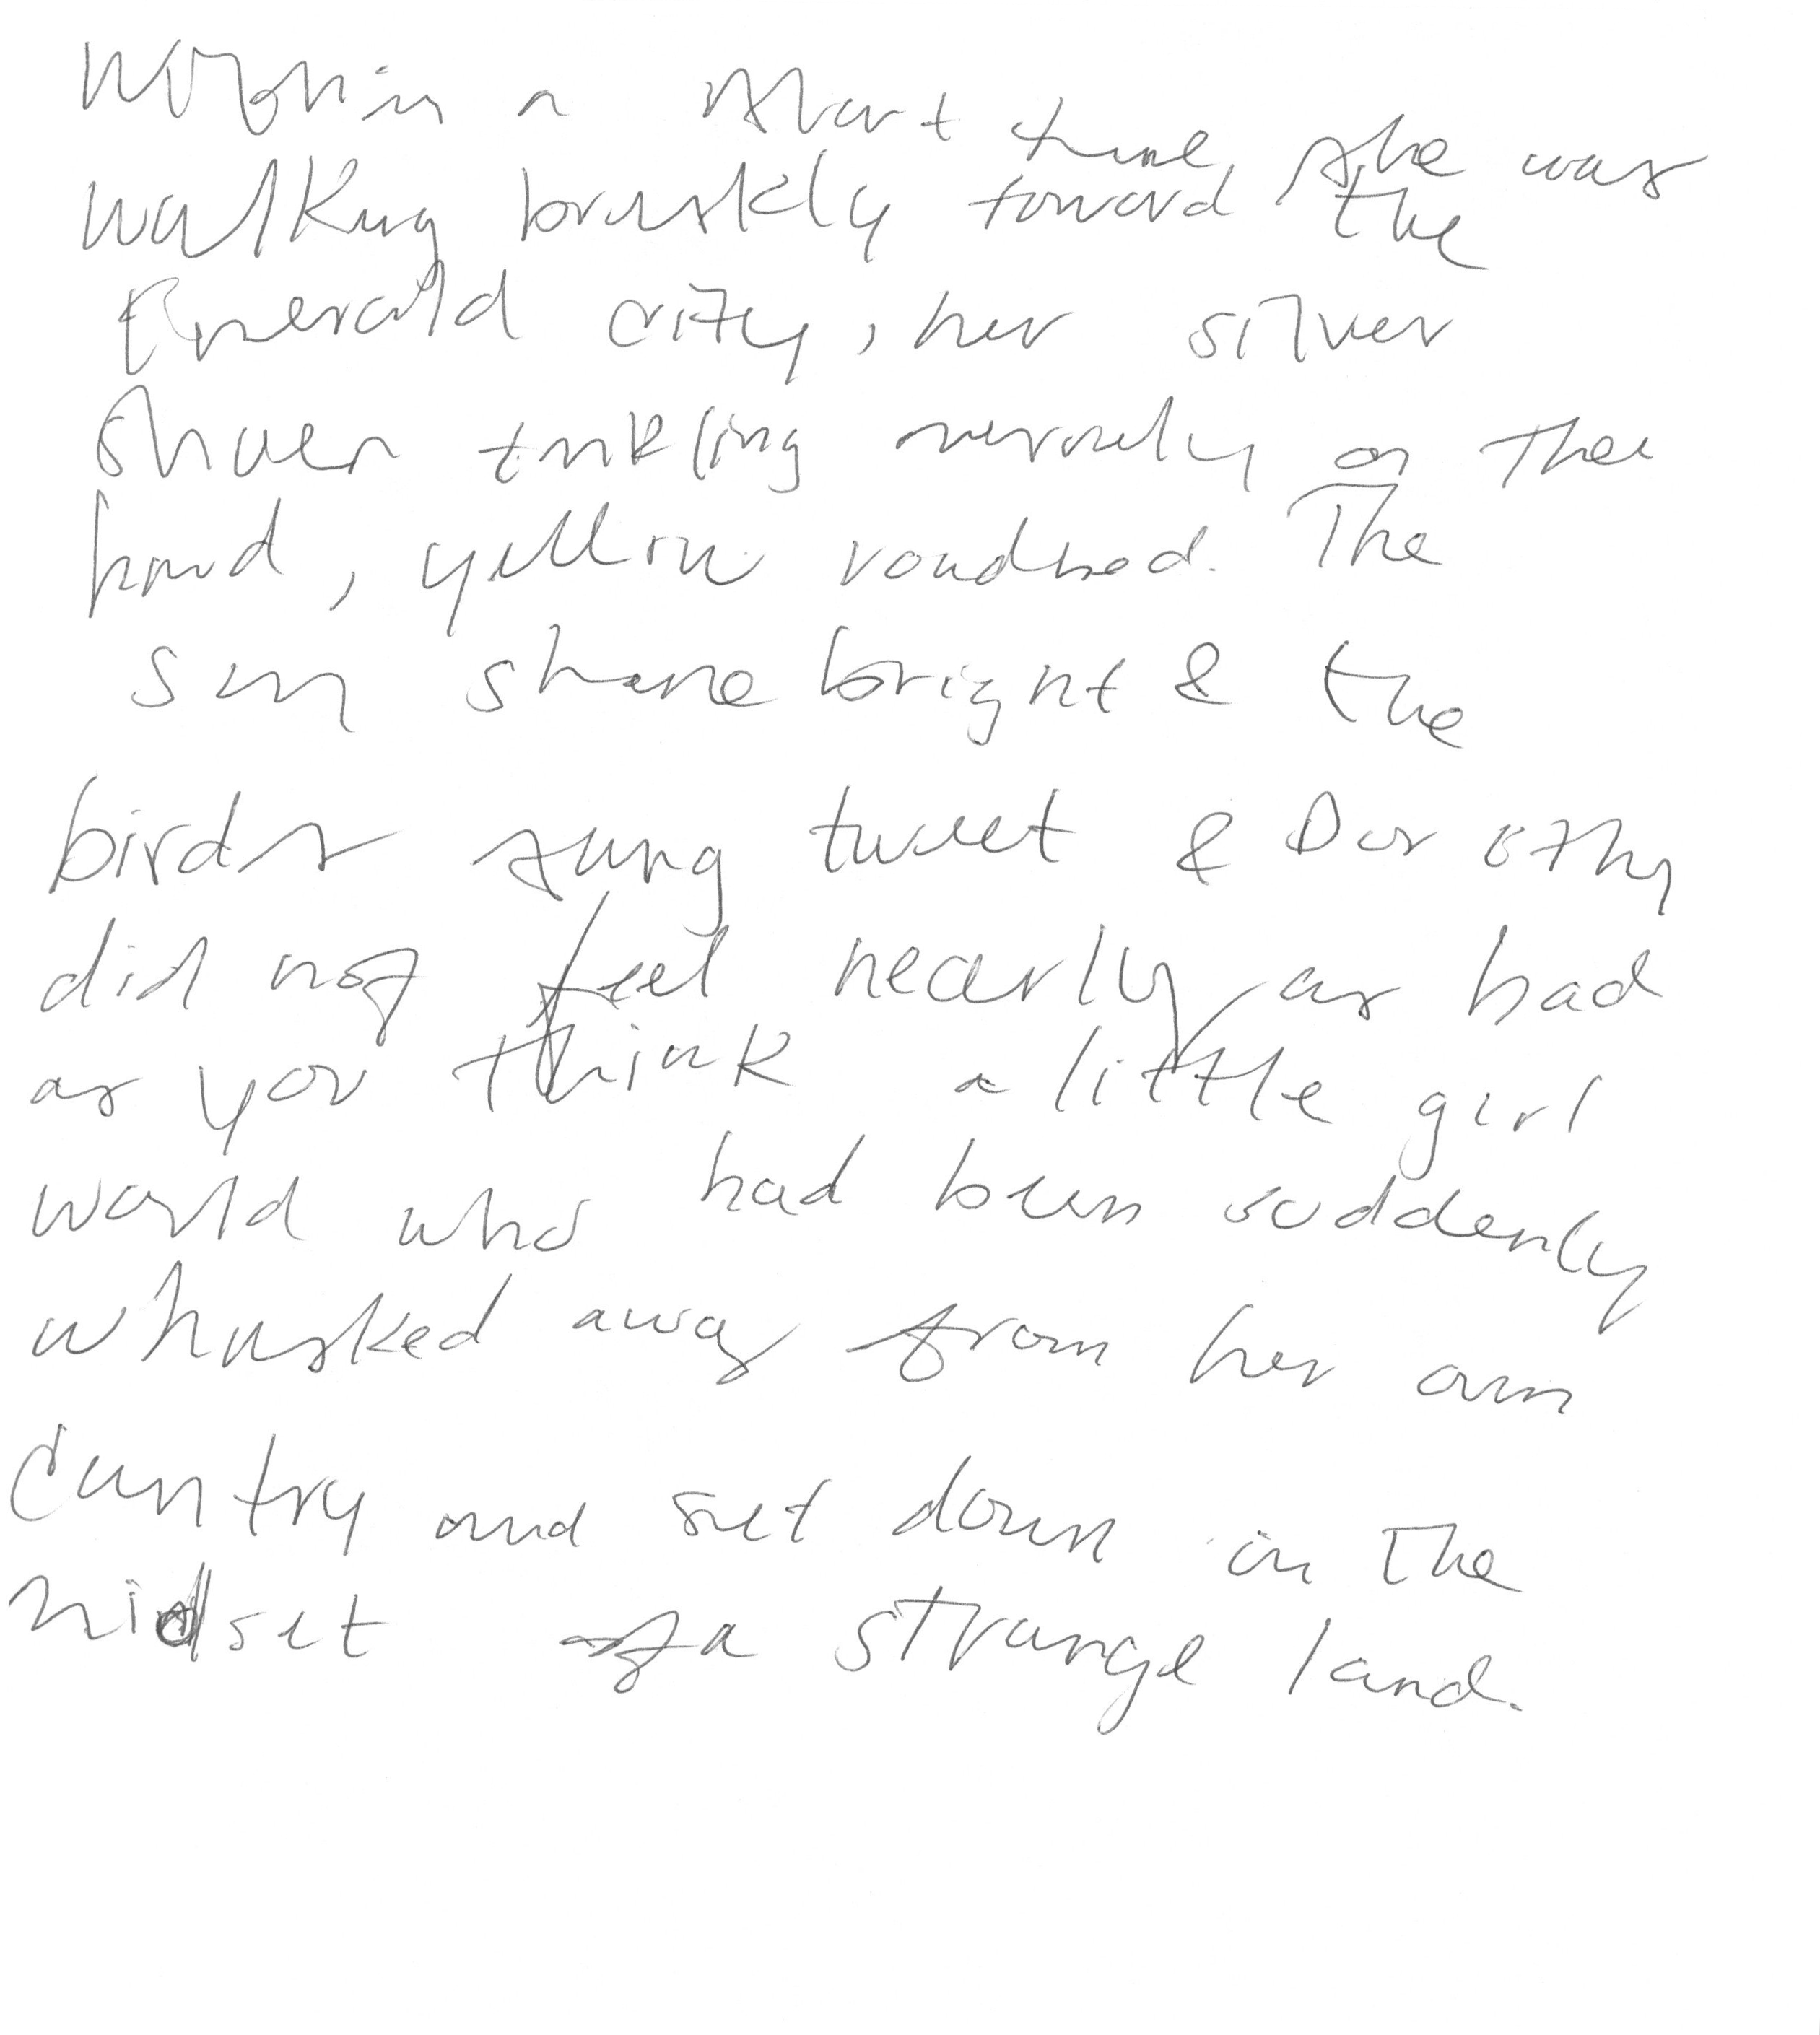 Within a short time she was
walking briskly toward the
Emerald city, her silver
shoes tinkling merrily on the
hard, yellow roadbed. The
sun shone bright & the
birds sung tweet & Dorothy
did not feel nearly as bad
as you think a little girl
would who had been suddenly
whisked away from her own
country and set down in the
midset of a strange land.